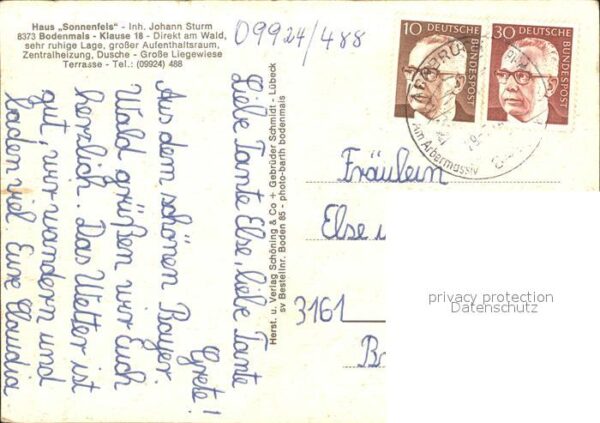 Haus „Sonnenfels" - Inh. Johann Sturm
8373 Bodenmais - Klause 18 - Direkt am Wald,
sehr ruhige Lage, großer Aufenthaltsraum,
Zentralheizung, Dusche - Große Liegewiese
Terrasse - Tel.: (09924) 488
09924/488
Liebe Tante Else, liebe Tante
Grete!
Aus dem schönen Bayer.
Wald grüßen wir Euch
herzlich. Das Wetter ist
gut, wir wandern und
baden viel Eure Claudia
Herst. u. Verlag Schöning & Co + Gebrüder Schmidt - Lübeck
sv Bestellnr. Boden 85 - photo-barth bodenmais
10
DEUTSCHE
BUNDESPOST
30
DEUTSCHE
BUNDESPOST
Am Arbermassiv
Fräulein
Else u
3161
privacy protection
Datenschutz